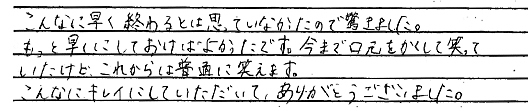 こんなに早く終わるとは思っていなかったので驚きました。
もっと早くにしておけばよかったです。今まで口元をかくして笑って
いたけど、これからは普通に笑えます。
こんなにキレイにしていただいて、ありがとうございました。